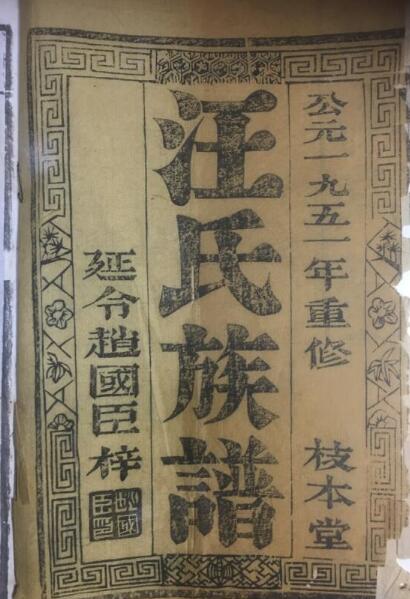 公元一九五一年重修 枝本堂
汪氏族譜
延令趙國臣梓